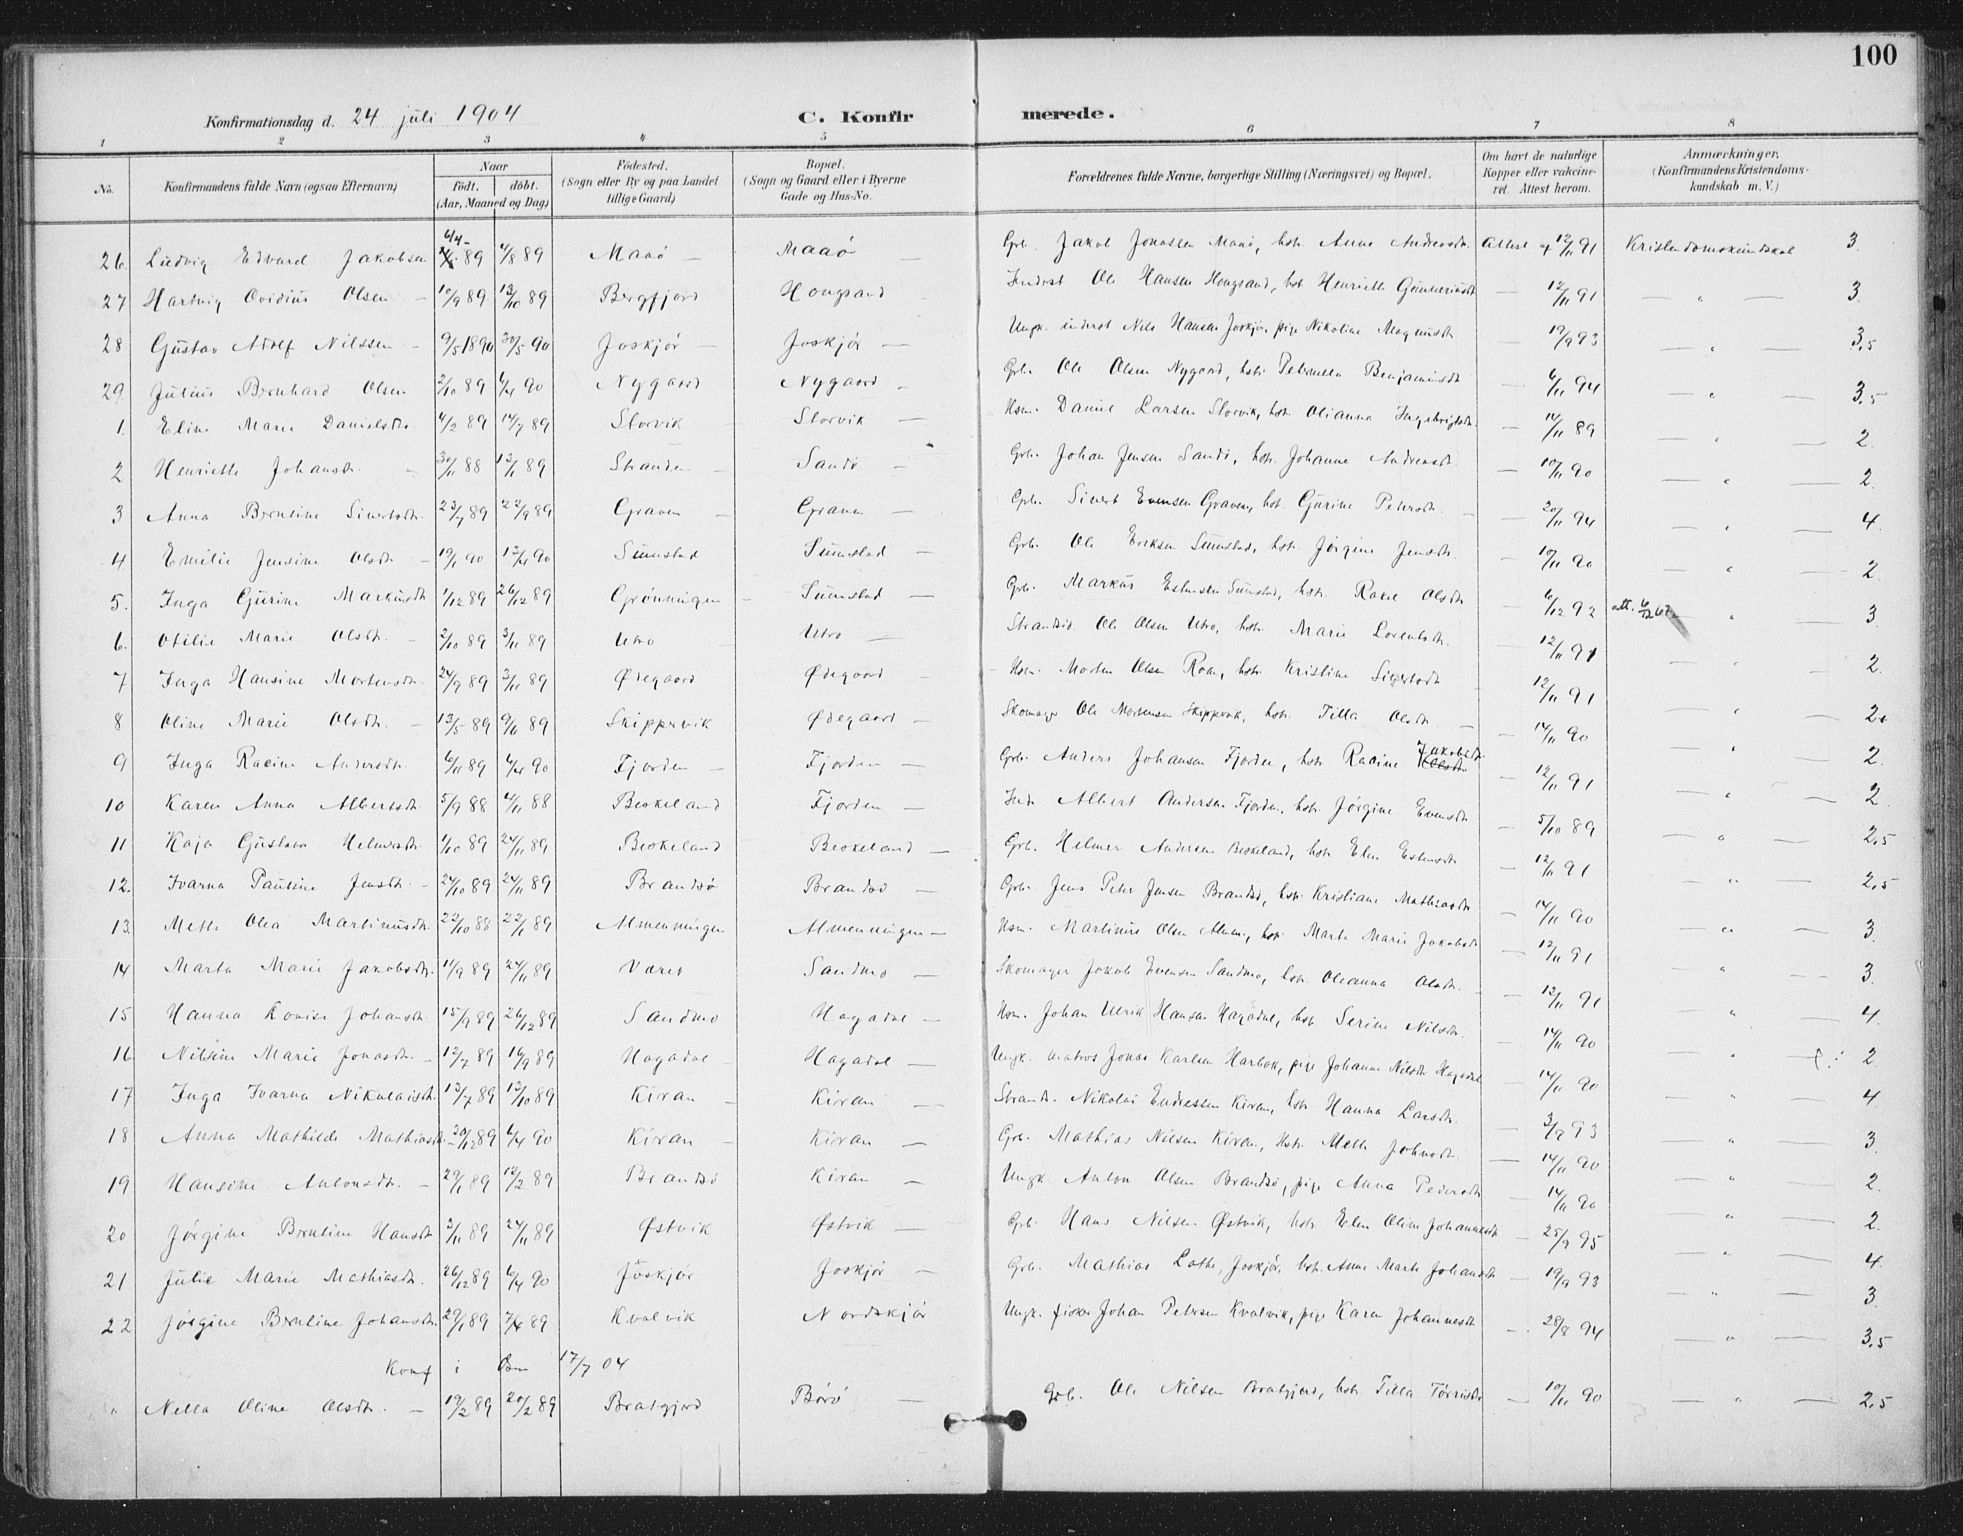 100
Konfirmationsdag d. 24 juli 1904 C. Konfirmerede.
1 2 3 4 5 6 7 8
No. Konfirmandens fulde Navn (ogsaa Efternavn) Naar født. døbt. (Aar, Maaned og Dag) Fødested. (Sogn eller By og paa Landet tillige Gaard) Bopæl. (Sogn og Gaard eller i Byerne Gade og Hus-No. Forældrenes fulde Navne, borgerlige Stilling (Næringsvei) og Bopæl. Om havt de naturlige Kopper eller vakcineret. Attest herom. Anmærkninger. (Konfirmandens Kristendomskundskab m. V.)
26. Ludvig Edvard Jakobsen 6/4 89 4/8 89 Maaø — Maaø — Grb. Jakob Jonassen Maaø, hstr. Anne Andreasdtr. Attest af 12/11 91 Kristendomskundskab 3.
27 Hartvig Ovidius Olsen — 10/9 89 13/10 89 Bergfjord Hongsand — Inderst Ole Hansen Hongsand, hstr Henriette — 12/11 91 — " — 3.
28 Gustav Adolf Nilssen — 9/5 1890 30/5 90 Joskjør — Joskjør — Ungk. inderst Nils Hansen Joskjør, pige Nikoline Magnusdtr — 19/9 93 — " — 3,5
29 Julius Bernhard Olsen 2/10 89 6/4 90 Nygaard Nygaard — Grb. Ole Olsen Nygaard, hstr. Petronella Benjaminsdtr — 6/11 94 — " — 3,5
1. Eline Marie Danielsdtr 4/2 89 14/7 89 Storvik — Storvik — Hsm. Daniel Larsen Storvik, hstr. Olianna Ingebrigtsdtr. — 14/11 89 — " — 2.
2 Henriette Johansdtr. — 30/11 88 13/1 89 Stranden — Sandø — Grb. Johan Jensen Sandø, hstr. Johanne Andreasdtr. — 10/11 90 — " — 2.
3 Anna Berntine Sivertsdtr. 23/7 89 22/9 89 Graven — Graven — Grb. Sivert Evensen Graven, hstr. Gurine Petersdtr. — 20/11 94 — " — 4.
4 Emilie Jensine Olsdtr — 19/1 90 13/4 90 Sumstad Sumstad — Grb. Ole Eriksen Sumstad, hstr. Jørgine Jensdtr. — 10/11 90 — " — 2.
5. Inga Gurine Markusdtr 1/12 89 26/12 89 Grønningen — Sumstad — Grb. Markus Estensen Sumstad, hstr. Rakel Olsdtr — 6/12 92 att. 6/12 67 " — 3.
6. Otilie Marie Olsdtr. — 2/10 89 3/11 89 Utro Utro — Strands. Ole Olsen Utro, hstr. Marie Lorentsdtr. — 12/11 91 — " — 2.
7 Inga Hansine Mortensdtr. 24/9 89 3/11 89 Ødegaard Ødegaard — Hsm. Morten Olsen Roan, hstr. Kristine Sivertsdtr — 12/11 91 — " — 2.
8 Oline Marie Olsdtr. — 13/5 89 9/6 89 Skippervik Ødegaard — Skomager Ole Mortensen Skippervik, hstr. Tilla Olsdtr. — 14/11 90 — " — 2.
9 Inga Racine Andersdtr. 6/11 89 6/4 90 Fjorden — Fjorden — Grb. Anders Johansen Fjorden, hstr Racine Jakobsdtr. — 12/11 91 — " — 2.
10 Karen Anna Albertsdtr. 5/9 88 4/11 88 Beskeland Fjorden — Ind. Albert Andersen Fjorden, hstr. Jørgine Evensdtr — 5/10 89 — " — 2.
11 Kaja Gustava Helmersdtr. 1/10 89 24/11 89 Beskeland Beskeland — Grb. Helmer Andersen Beskeland, hstr. Elen Estensdtr — 12/11 91 — " — 2,5
12. Ivarna Pauline Jensdtr. — 24/10 89 24/11 89 Brandsø Brandsø — Grb. Jens Peter Jensen Brandsø, hstr. Kristiane Mathiasdtr — 14/11 90 — " — 2,5
13. Mette Olea Martinusdtr. 22/10 88 22/1 89 Almenningen Almenningen — Hsm. Martinus Olsen Almen., hstr. Marta Marie Jakobsdtr — 12/11 91 — " — 3.
14 Marta Marie Jakobsdtr. 11/9 89 24/11 89 Været Sandmo — Skomager Jakob Evensen Sandmo, hstr. Oleanna Olsdtr. — 12/11 91 — " — 3.
15 Hanna Lovise Johansdtr. 15/9 89 26/12 89 Sandmo Hagadal — Hsm. Johan Ulrik Hansen Hagadal, hstr. Serine Nilsdtr. — 14/11 90 — " — 4
16. Nilsine Marie Jonasdtr. — 12/7 89 16/9 89 Hagadal — Hagadal — Ungk. matros Jonas Karlsen Harbak, pige Johanna Nilsdtr Hagadal — 14/11 90 — " — 2
17 Inga Ivarna Nikolaisdtr. 13/7 89 13/10 89 Kiran — Kiran — Strands. Nikolai Endressen Kiran, hstr Hanna Larsdtr. — 3/9 93 — " — 4
18 Anna Mathilde Mathiasdtr. 20/12 89 6/4 90 Kiran — Kiran — Grb. Mathias Nilsen Kiran, hstr. Mette Johnsdtr. — 14/11 90 — " — 3
19 Hansine Antonsdtr. — 29/1 89 12/2 89 Brandsø Kiran — Ungk. Anton Olsen Brandsø, pige Anna Pedersdtr — 14/11 90 — " — 2.
20 Jørgine Berntine Hansdtr 3/11 89 24/11 89 Østvik Østvik — Grb. Hans Nilsen Østvik, hstr. Elen Oline Johannesdtr — 25/9 95 — " — 2.
21 Julie Marie Mathiasdtr. 26/12 89 6/4 90 Joskjør Joskjør — Grb. Mathias Joskjør, hstr. Anne Marta Johansdtr — 19/9 93 — " — 4.
3.
22 Jørgine Berntine Johansdtr. 29/1 89 7/4 89 Kvalvik Nordskjør Ungk. fisker Johan Petersen Kvalvik, pige Karen Johannesdtr — 28/8 94 — " — 3,5
Konf i 17/7 04
" Nella Oline Olsdtr. — 19/2 89 20/2 89 Bratgjerd Børø — Grb. Ole Nilsen Bratgjerd, hstr. Tilla — 10/11 90 " — 2,5